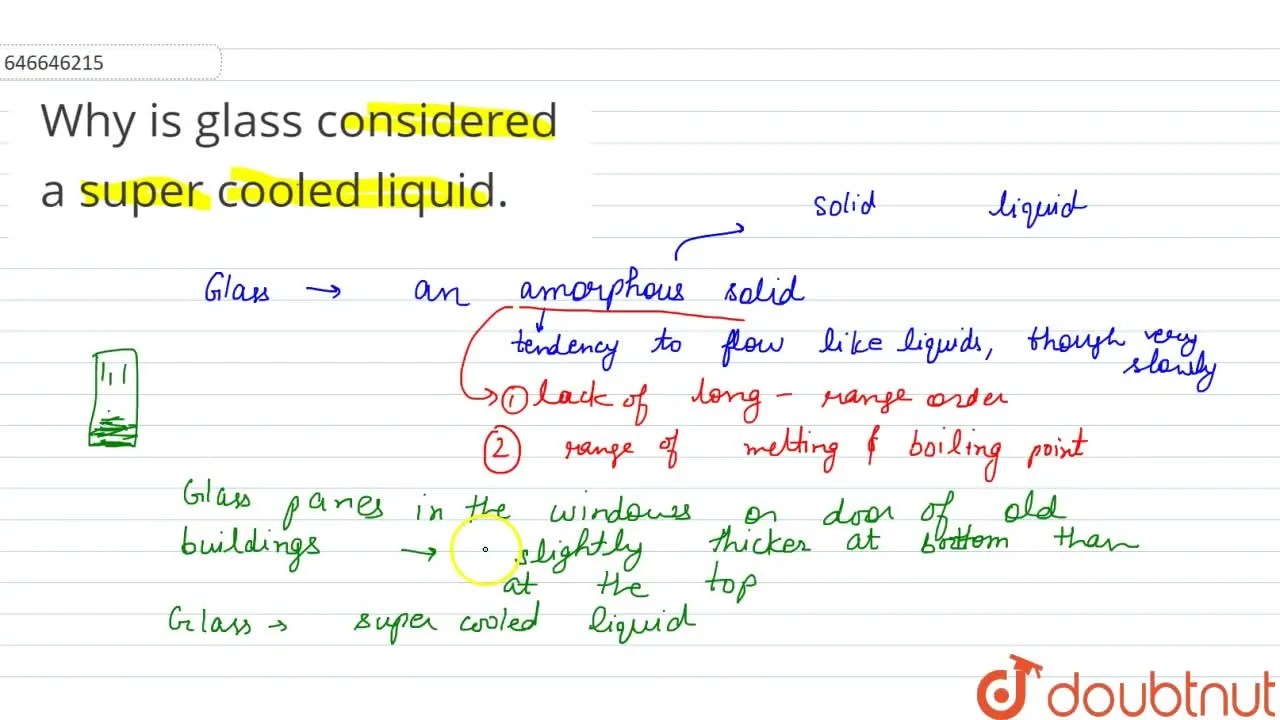 646646215
Why is glass considered
a super cooled liquid.
solid liquid
Glass → an amorphous solid
tendency to flow like liquids, though very
slowly
① lack of long - range order
② range of melting & boiling point
Glass panes in the windows or door of old
buildings → slightly thicker at bottom than
at the top
Glass → super cooled liquid
doubtnut